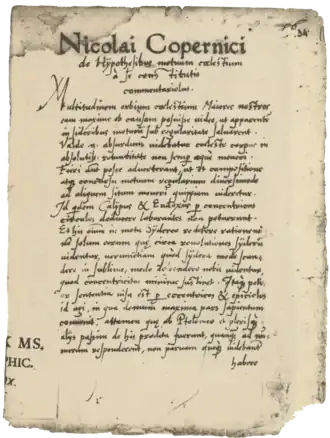 34
Nicolai Copernici
de Hypothesibus motuum cœlestium
à se constitutis
commentariolus.
Multitudinem orbium cœlestium Maiores nostros
eam maxime ob causam posuisse video, ut apparentem
in sideribus motum sub regularitate saluarent.
Valde n. absurdum videbatur cœleste corpus in
absolutiss. rotunditate non semp æque moueri.
Fieri aũt posse aduerterant, ut et compositione
atq concursu motuum regularium diuersimode
ad aliquem situm moueri quippiam videretur.
Id qdem Calippus & Eudoxus p concentricos
circulos deducere laborantes non potuerunt
Et his omnium in motu sydereo reddere rationem
nõ solum eorum quæ circa reuolutiones syderum
videntur, verumetiam quod sydera modo scan-
dere in sublime, modo descendere nobis videntur,
quod concentricitas minime sustinet. Itaq potior
sententia visa est p eccentricos & epicyclos
id agi, in qua demum maxima pars sapientum
conuenit. attamen quæ à Ptolemeo et plerisq
alijs passim de his prodita fuerunt, quanq ad nu-
merum responderent, non paruam quoq videbant
habere
X MS.
PHIC.
PX.